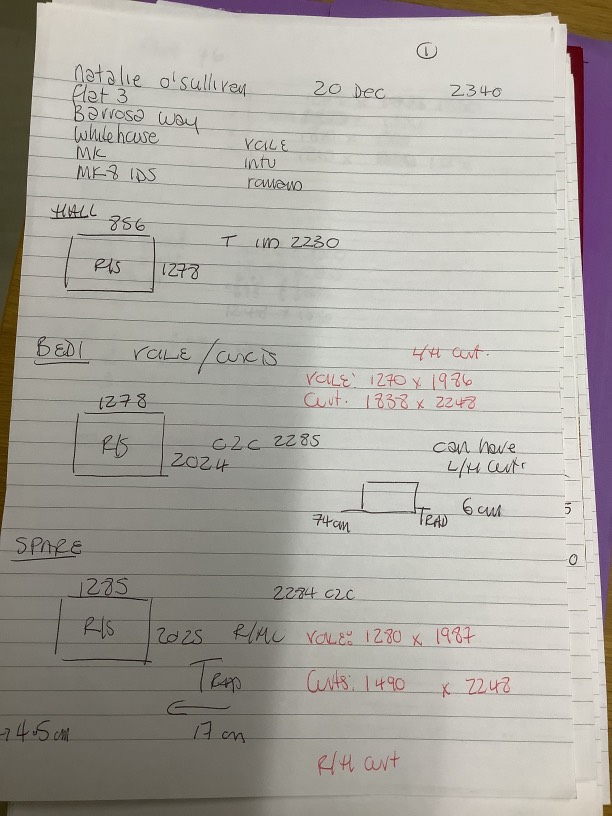 ①
Natalie O'Sullivan 20 Dec 2340
Flat 3
Barrosa Way
Whitehouse VALE
MK intu
MK8 1DS roman
HALL
856
R/S 1278 T 1m 2230
BED1 VALE/axis L/H curt.
VALE: 1270 x 1986
1278 Curt. 1838 x 2248
R/S 2024 C2C 2285 can have
L/H curt.
74cm TRAD 6cm
SPARE
1285 2284 C2C
R/S 2025 R/HC VALE: 1280 x 1987
TRAD Curts: 1490 x 2248
→ 4.5cm ← 17cm
R/H curt
5
0